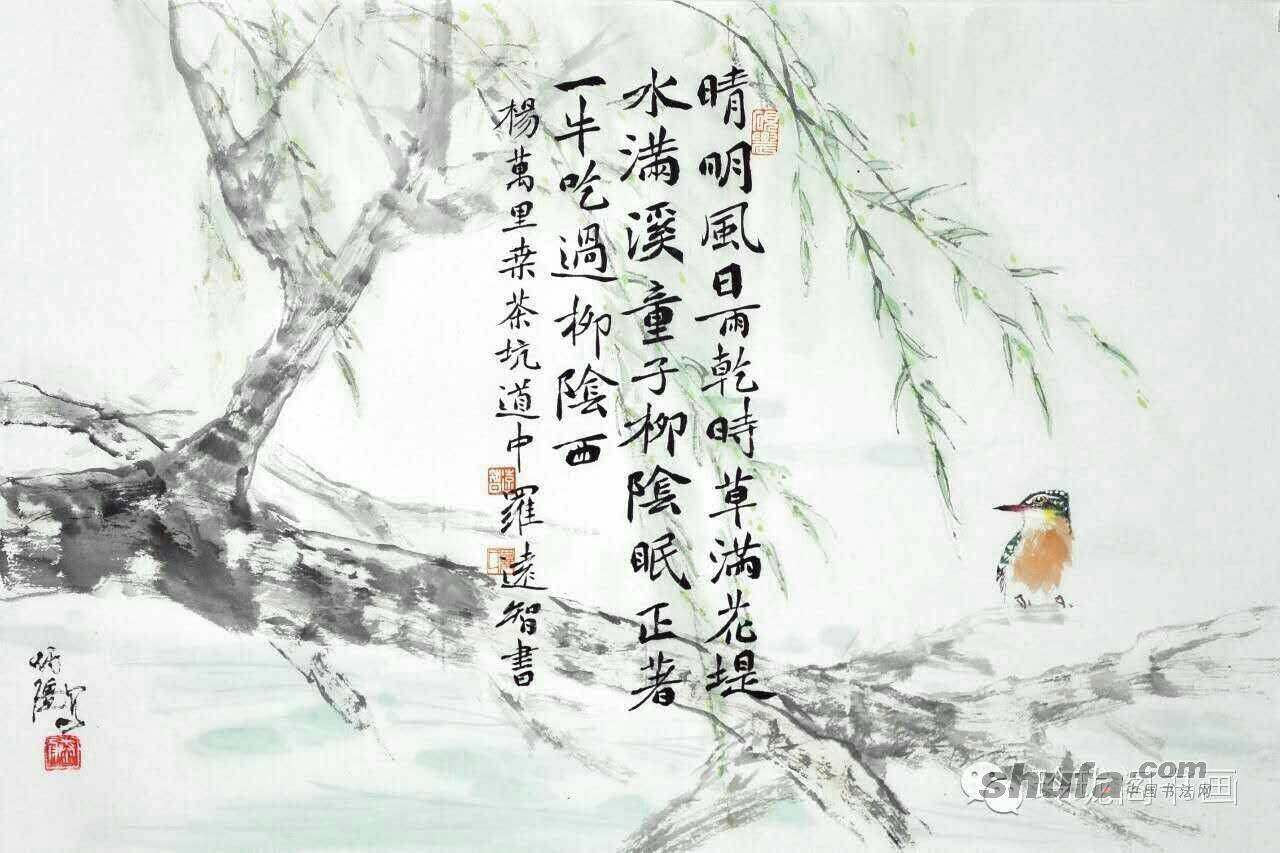 晴明風日雨乾時草滿花堤
水滿溪童子柳陰眠正著
一牛吃過柳陰西
楊萬里桒茶坑道中羅遠智書
shufa.com
中国书法网